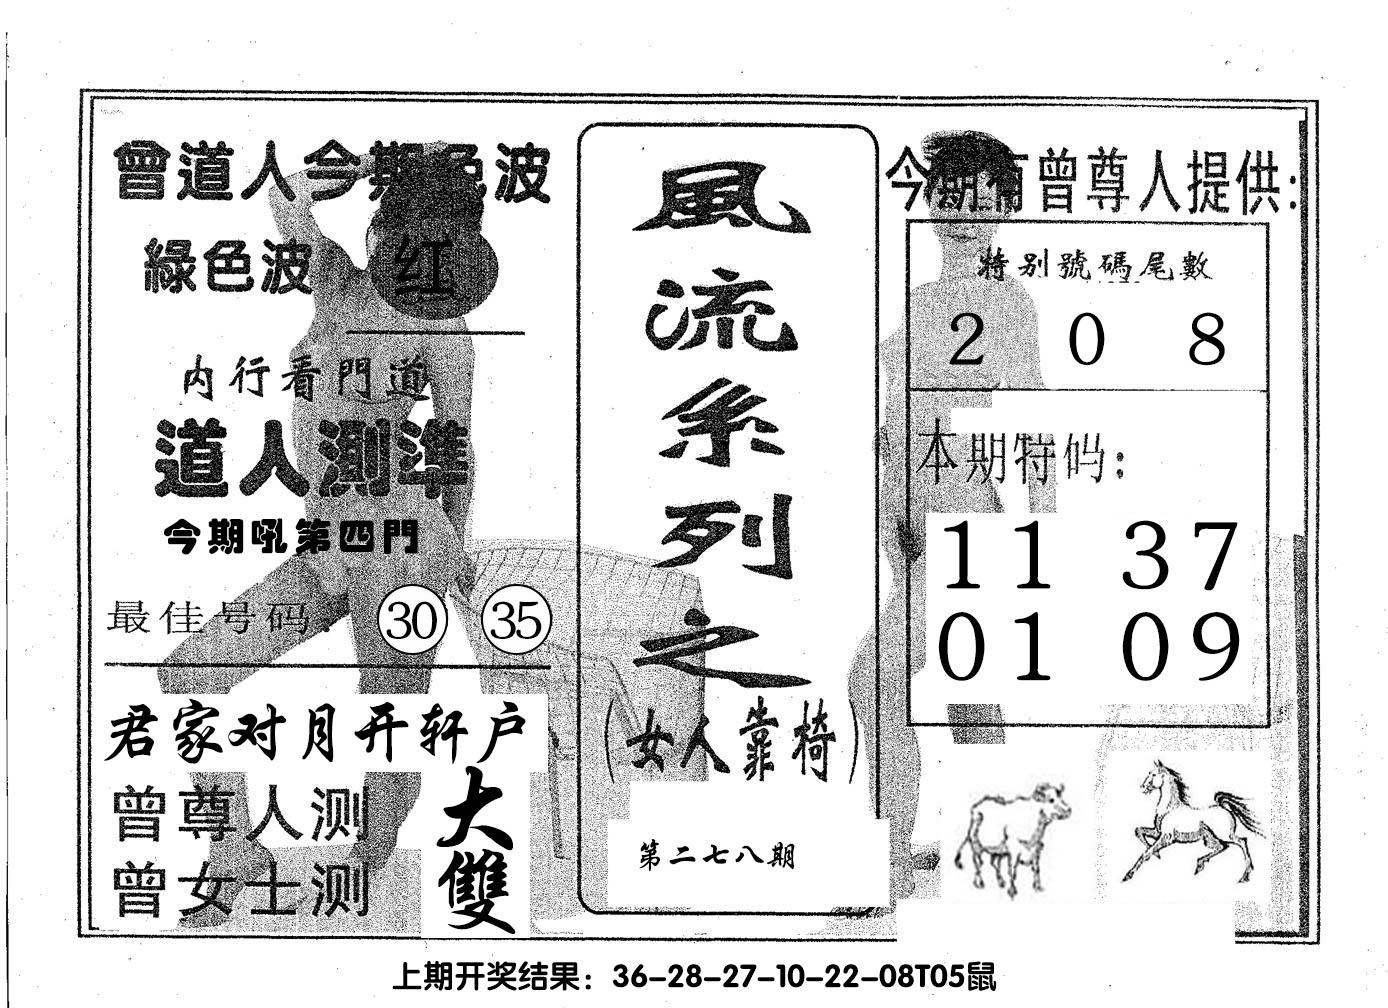 曾道人今期色波
綠色波 红
内行看門道
道人測準
今期吼第四門
最佳号码: 30 35
君家对月开轩户
曾尊人测 大
曾女士测 雙
風流系列之
(女人靠椅)
第二七八期
今期有曾尊人提供:
特别號碼尾數
2 0 8
本期特码:
11 37
01 09
上期开奖结果：36-28-27-10-22-08T05鼠